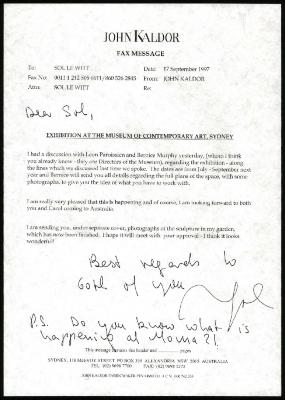 JOHN KALDOR
FAX MESSAGE
To: SOL LE WITT Date: 17 September 1997
Fax No: 0011 1 212 505 From: JOHN KALDOR
Attn: SOL LE WITT Re:
Dear Sol,
EXHIBITION AT THE MUSEUM OF CONTEMPORARY ART, SYDNEY
I had a discussion with Leon Paroissien and Bernice Murphy yesterday, (whom I think
you already know - they are Directors of the Museum), regarding the exhibition - along
the lines which we discussed last time we spoke. The dates are from July - September next
year and Bernice will send you all details regarding the full plans of the space, with some
photographs, to give you the idea of what you have to work with.
I am really very pleased that this is happening and of course, I am looking forward to both
you and Carol coming to Australia.
I am sending you, under separate cover, photographs of the sculpture in my garden,
which has now been finished. I hope it will meet with your approval - I think it looks
wonderful!
Best regards to
both of you
P.S. Do you know what is
happening at Moma?!
This message contains this header and pages
SYDNEY, 118 McEVOY STREET PO BOX ALEXANDRIA NSW 2015 AUSTRALIA